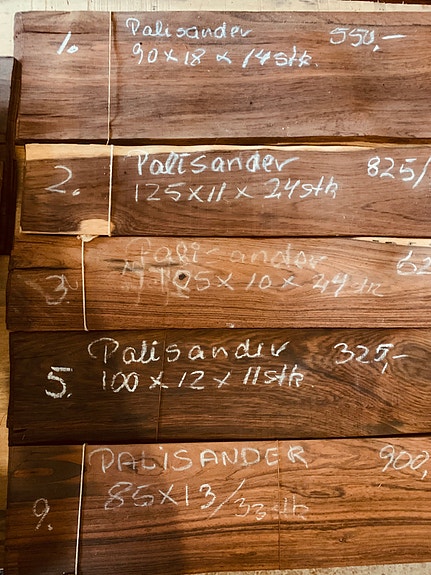 1. Palisander 550,-
90 x 18 x 14 stk.
2. Palisander 825/
125 x 11 x 24 stk
3. Palisander 62
105 x 10 x 24 stk
5. Palisander 325,-
100 x 12 x 11 stk.
9. PALISANDER 900,
85 x 13/33 stk